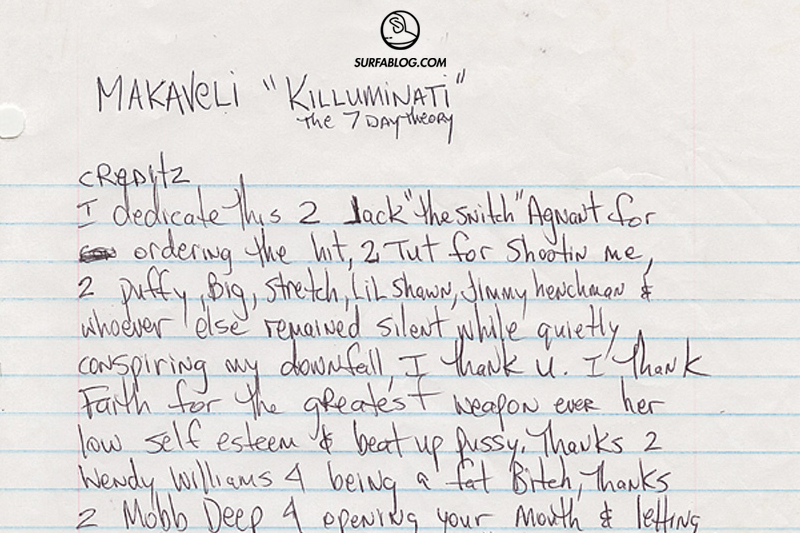 SL
SURFABLOG.COM
MAKAVELI "KILLUMINATI"
the 7 DAY theory
cREDitz
I dedicate this 2 Jack "the snitch" Agnant for
ordering the hit, 2 Tut for shootin me,
2 puffy, Big, stretch, LiL shawn, Jimmy henchman &
whoever else remained silent while quietly
conspiring my downfall, I thank u. I thank
Faith for the greatest weapon ever her
low self esteem & beat up pussy. Thanks 2
Wendy Williams 4 being a fat Bitch, Thanks
2 Mobb Deep 4 opening your mouth & letting